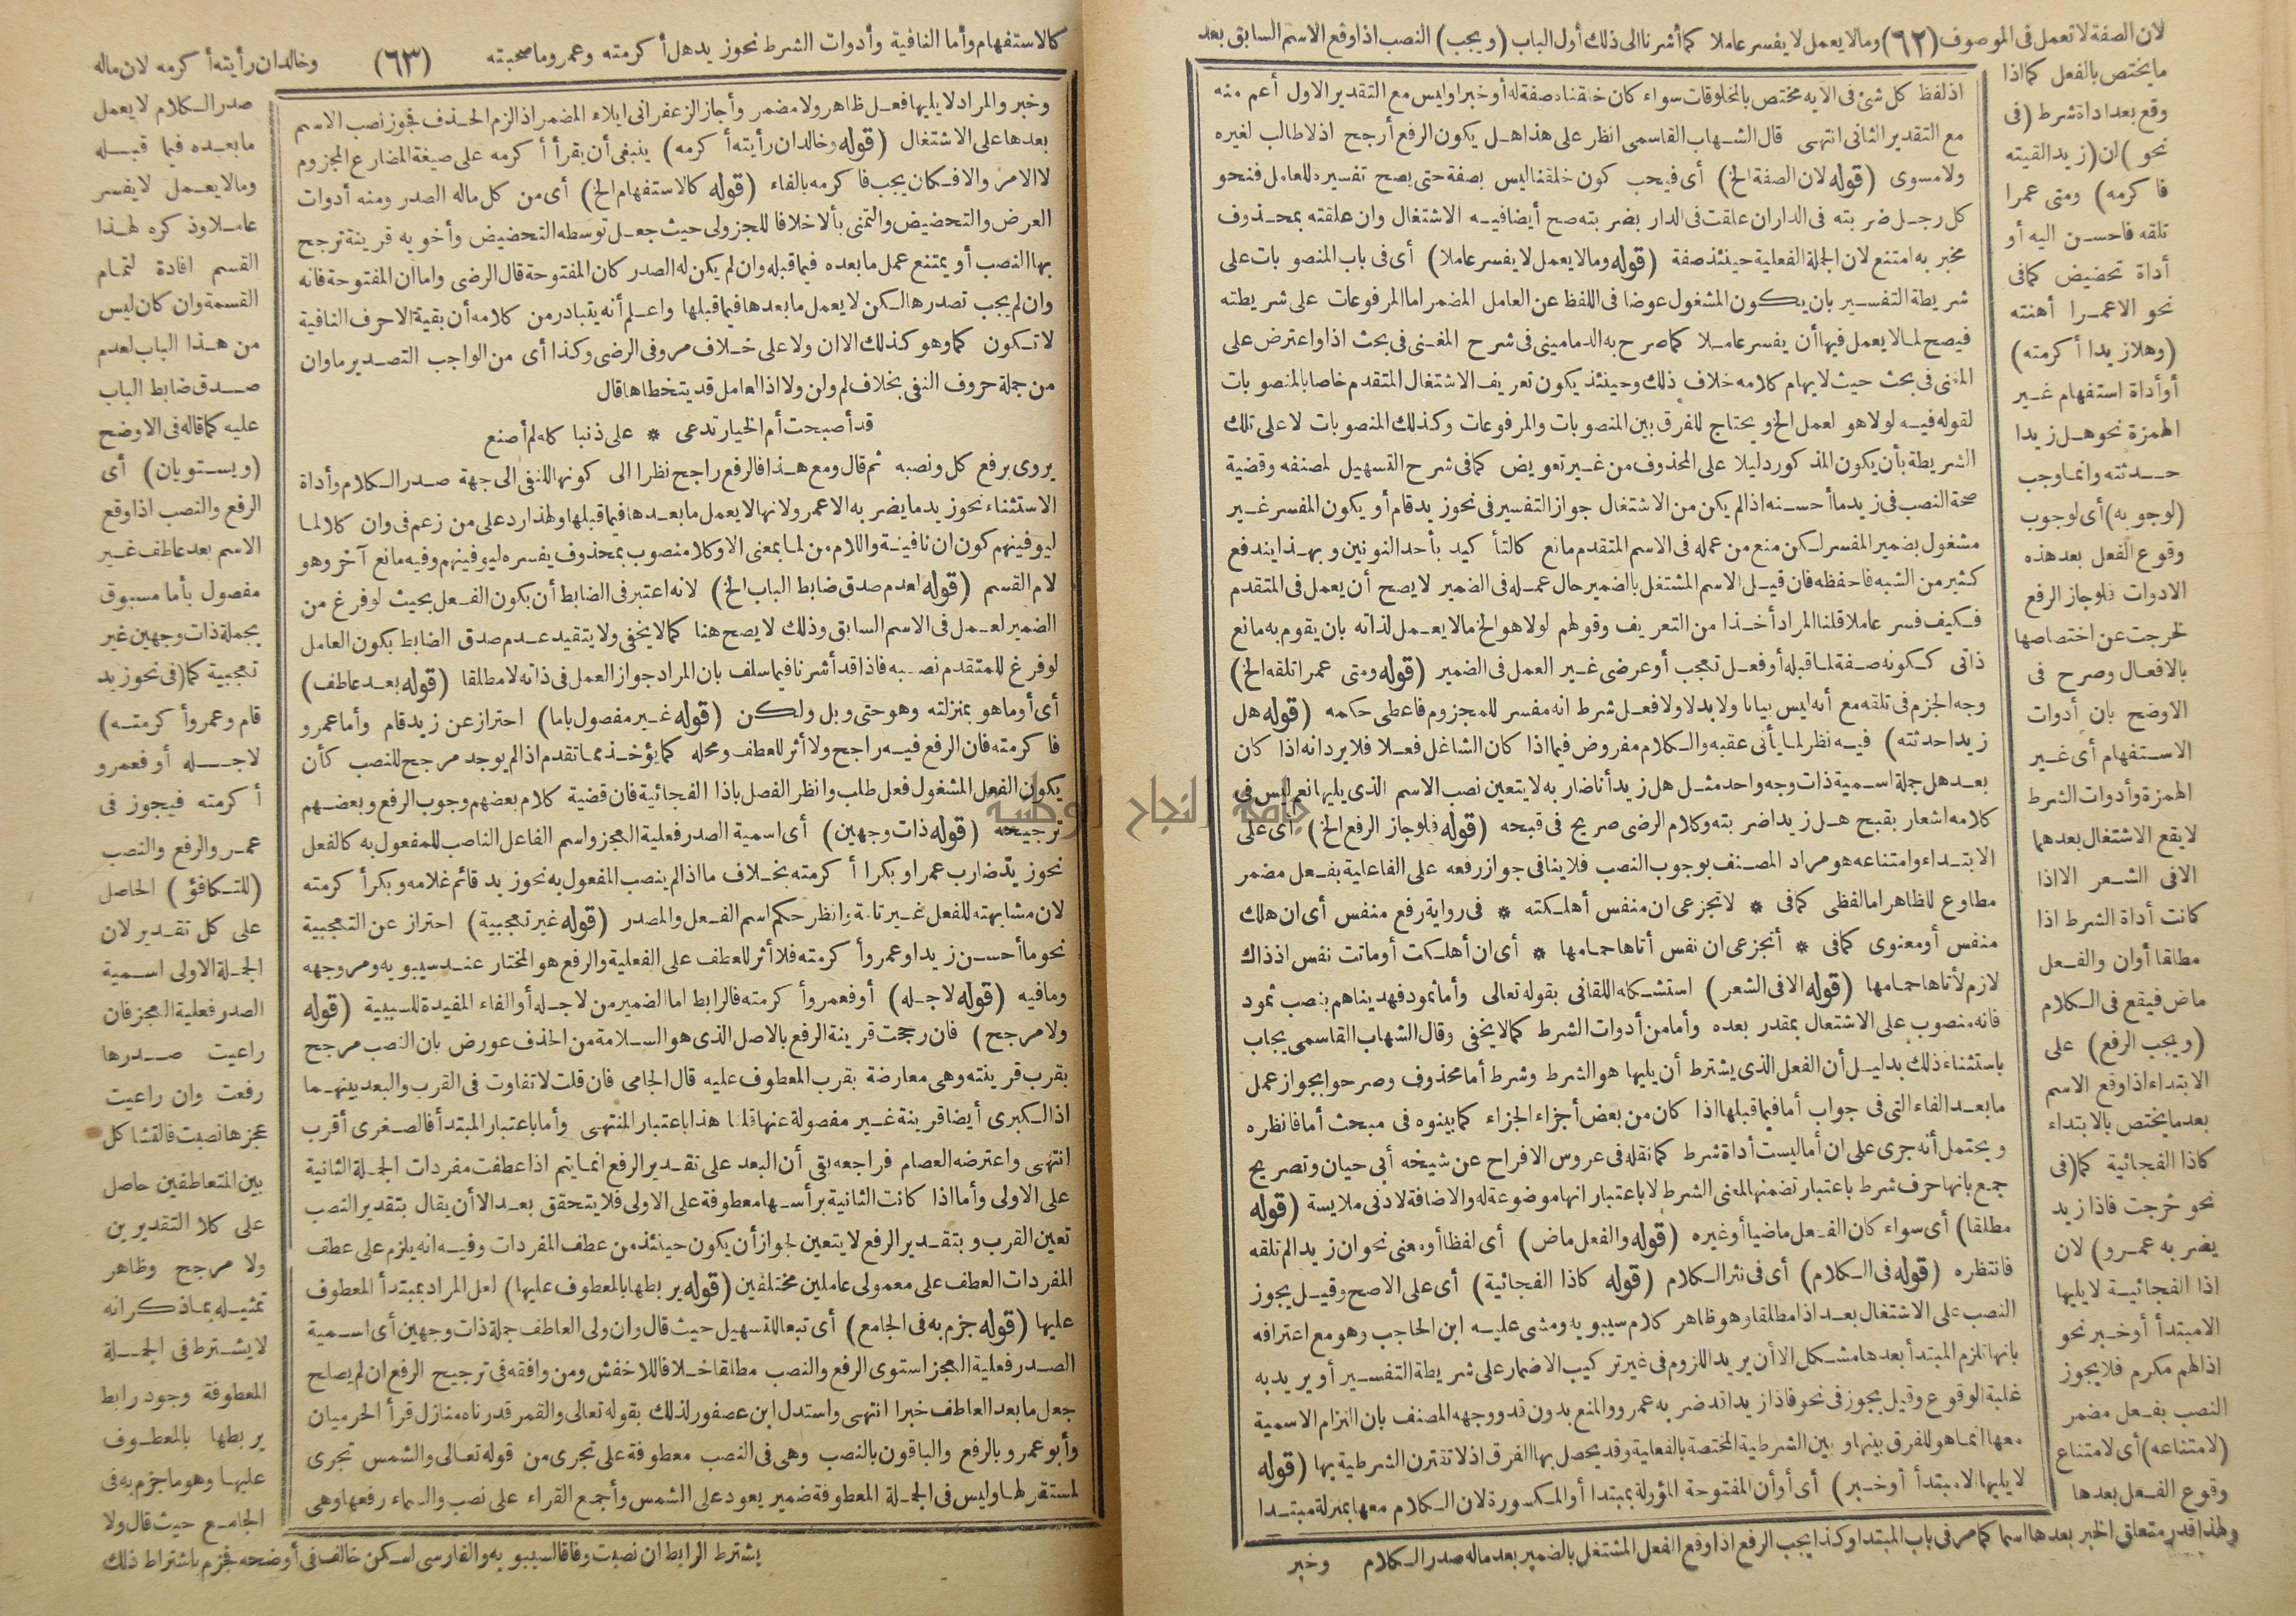 لان الصفة لا تعمل فى الموصوف (٦٢) وما لا يعمل لا يفسر عاملا كما أشرنا الى ذلك أول الباب (ويجب) النصب اذا وقع الاسم السابق بعد
ما يختص بالفعل كما اذا
وقع بعد اداة شرط (فى
نحو) ان (زيدا لقيته
فاكرمه) ومتى عمرا
تلقه فاحسن اليه أو
أداة تحضيض كما فى
نحو الا عمرا أهنته
(وهلا زيدا أكرمته)
أو أداة استفهام غير
الهمزة نحو هل زيدا
حدثته وانما وجب
(لوجوبه) أى لوجوب
وقوع الفعل بعد هذه
الادوات فلو جاز الرفع
لخرجت عن اختصاصها
بالافعال وصرح فى
الاوضح بان أدوات
الاستفهام أى غير
الهمزة وأدوات الشرط
لا يقع الاشتغال بعدهما
الا فى الشعر الا اذا
كانت أداة الشرط اذا
مطلقا أو ان والفعل
ماض فيقع فى الكلام
(ويجب الرفع) على
الابتداء اذا وقع الاسم
بعد ما يختص بالابتداء
كاذا الفجائية كما (فى
نحو خرجت فاذا زيد
يضربه عمرو) لان
اذا الفجائية لا يليها
الا مبتدأ أو خبر نحو
اذا لهم مكر فلا يجوز
النصب بفعل مضمر
(لامتناعه) أى لامتناع
وقوع الفعل بعدها
ولهذا قدر متعلق الخبر بعدها اسما كما مر فى باب المبتدا وكذا يجب الرفع اذا وقع الفعل المشتغل بالضمير بعد ما له صدر الكلام
اذ لفظ كل شئ فى الآية مختص بالمخلوقات سواء كان خلقناه صفة له أو خبرا وليس مع التقدير الاول أعم منه
مع التقدير الثانى انتهى قال الشهاب القاسمى انظر على هذا هل يكون الرفع أرجح اذ لا طالب لغيره
ولا مسوى (قوله لان الصفة الخ) أى فيجب كون خلقنا ليس بصفة حتى يصح تفسيره للعامل فنحو
كل رجل ضربته فى الدار ان علقت فى الدار بضربته صح أيضا فيه الاشتغال وان علقته بمحذوف
مخبر به امتنع لان الجملة الفعلية حينئذ صفة (قوله وما لا يعمل لا يفسر عاملا) أى فى باب المنصوبات على
شريطة التفسير بان يكون المشغول عوضا فى اللفظ عن العامل المضمر اما المرفوعات على شريطته
فيصح لما لا يعمل فيها أن يفسر عاملا كما صرح به الدمامينى فى شرح المغنى فى بحث اذا واعترض على
المتنى فى بحث حيث لايهام كلامه خلاف ذلك وحينئذ يكون تعريف الاشتغال المتقدم خاصا بالمنصوبات
لقوله فيه لولا هو لعمل الخ ويحتاج للفرق بين المنصوبات والمرفوعات وكذلك المنصوبات لا على تلك
الشريطة بأن يكون المذكور دليلا على المحذوف من غير تعويض كما فى شرح التسهيل لمصنفه وقضية
صحة النصب فى زيد ما أحسنه اذا لم يكن من الاشتغال جواز التفسير فى نحو زيد قام أو يكون المفسر غير
مشغول بضمير المفسر لكن منع من عمله فى الاسم المتقدم مانع كالتأكيد بأحد النونين وبهذا يندفع
كثير من الشبه فاحفظه فان قيل الاسم المشتغل بالضمير حال عمله فى الضمير لا يصح أن يعمل فى المتقدم
فكيف فسر عاملا قلنا المراد أخذا من التعريف وقولهم لولا هو الخ ما لا يعمل لذاته بان يقوم به مانع
ذاتى ككونه صفة لما قبله أو فعل تعجب أو عرضى غير العمل فى الضمير (قوله ومتى عمرا تلقه الخ)
وجه الجزم فى تلقه مع أنه ليس بيانا ولا بدلا ولا فعل شرط انه مفسر للمجزوم فاعطى حكمه (قوله هل
زيدا حدثته) فيه نظر لما يأتى عقبه والكلام مفروض فيما اذا كان الشاغل فعلا فلا يرد انه اذا كان
بعد هل جملة اسمية ذات وجه واحد مثل هل زيدا أنا ضاربه لا يتعين نصب الاسم الذى يليها نعم ليس فى
كلامه اشعار بقبح هل زيدا ضربته وكلام الرضى صريح فى قبحه (قوله فلو جاز الرفع الخ) أى على
الابتداء وامتناعه هو مراد المصنف بوجوب النصب فلا ينافى جواز رفعه على الفاعلية بفعل مضمر
مطاوع للظاهر اما لفظى كما فى * لا تجزعى ان منفس أهلكته * فى رواية رفع منفس أى ان هلك
منفس أو معنوى كما فى * أتجزعى ان نفس أتاها حمامها * أى ان أهلكت أو ماتت نفس اذ ذاك
لازم لأتاها حمامها (قوله الا فى الشعر) استشكله اللقانى بقوله تعالى وأما ثمود فهديناهم بنصب ثمود
فانه منصوب على الاشتغال بمقدر بعده وأما من أدوات الشرط كما لا يخفى وقال الشهاب القاسمى يجاب
باستثناء ذلك بدليل أن الفعل الذى يشترط أن يليها هو الشرط وشرط أما محذوف وصرحوا بجواز عمل
ما بعد الفاء التى فى جواب أما فيما قبلها اذا كان من بعض أجزاء الجزاء كما بينوه فى مبحث أما فانظره
ويحتمل أنه جرى على ان أما ليست أداة شرط كما نقله فى عروس الافراح عن شيخه أبى حيان وتصريح
جمع بانها حرف شرط باعتبار تضمنها لمعنى الشرط لا باعتبار انها موضوعة له والاضافة لادنى ملابسة (قوله
مطلقا) أى سواء كان الفعل ماضيا أو غيره (قوله والفعل ماض) أى لفظا أو معنى نحو ان زيدا لم تلقه
فانتظره (قوله فى الكلام) أى فى نثر الكلام (قوله كاذا الفجائية) أى على الاصح وقيل يجوز
النصب على الاشتغال بعد اذا مطلقا وهو ظاهر كلام سيبويه ومشى عليه ابن الحاجب وهو مع اعترافه
بانها تلزم المبتدأ بعدها مشكل الا أن يريد اللزوم فى غير تركيب الاضمار على شريطة التفسير أو يريد به
غلبة الوقوع وقيل يجوز فى نحو فاذا زيدا قد ضربه عمرو والمنع بدون قد ووجهه المصنف بان التزام الاسمية
معها انما هو للفرق بينها وبين الشرطية المختصة بالفعلية وقد يحصل بها الفرق اذ لا تقترن الشرطية بها (قوله
لا يليها الا مبتدأ أو خبر) أى أو أن المفتوحة المؤولة بمبتدا أو المكسورة لان الكلام معها بمنزلة مبتدا
وخبر
كالاستفهام وأما النافية وأدوات الشرط نحو زيد هل أكرمته وعمرو ما صحبته (٦٣) وخالد ان رأيته أكرمه لان ما له
صدر الكلام لا يعمل
ما بعده فيما قبله
وما لا يعمل لا يفسر
عاملا وذكره لهذا
القسم افادة لتمام
القسمة وان كان ليس
من هذا الباب لعدم
صدق ضابط الباب
عليه كما قاله فى الاوضح
(ويستويان) أى
الرفع والنصب اذا وقع
الاسم بعد عاطف غير
مفصول بأما مسبوق
بجملة ذات وجهين غير
تعجبية كما (فى نحو زيد
قام وعمرو أكرمته)
لاجله أو فعمرو
أكرمته فيجوز فى
عمرو الرفع والنصب
(للتكافؤ) الحاصل
على كل تقدير لان
الجملة الاولى اسمية
الصدر فعلية العجز فان
راعيت صدرها
رفعت وان راعيت
عجزها نصبت فالتشاكل
بين المتعاطفين حاصل
على كلا التقديرين
ولا مرجح وظاهر
تمثيله بما ذكر انه
لا يشترط فى الجملة
المعطوفة وجود رابط
يربطها بالمعطوف
عليها وهو ما جزم به فى
الجامع حيث قال ولا
يشترط الرابط ان نصبت وفاقا لسيبويه والفارسى لكن خالف فى أوضحه فجزم باشتراط ذلك
وخبر والمراد لا يليها فعل ظاهر ولا مضمر وأجاز الزعفرانى ايلاء المضمر اذ الزم الحذف فجوز نصب الاسم
بعدها على الاشتغال (قوله وخالد ان رأيته أكرمه) ينبغى أن يقرأ أكرمه على صيغة المضارع المجزوم
لا الامر والا فكان يجب فاكرمه بالفاء (قوله كالاستفهام الخ) أى من كل ماله الصدر ومنه أدوات
العرض والتحضيض والتمنى بألا خلافا للجزولى حيث جعل توسطه التحضيض وأخويه قرينة ترجح
بها النصب أو يمتنع عمل ما بعده فيما قبله وان لم يكن له الصدر كان المفتوحة قال الرضى واما ان المفتوحة فانه
وان لم يجب تصدرها لكن لا يعمل ما بعدها فيما قبلها واعلم أنه يتبادر من كلامه أن بقية الاحرف النافية
لا تكون كما وهو كذلك الا ان ولا على خلاف مر وفى الرضى وكذا أى من الواجب التصدير ما وان
من جملة حروف النفى بخلاف لم ولن ولا اذ العامل قد يتخطاها قال
قد أصبحت أم الخيار تدعى * على ذنبا كله لم أصنع
يروى برفع كل ونصبه ثم قال ومع هذا فالرفع راجح نظرا الى كونها للنفى الى جهة صدر الكلام وأداة
الاستثناء نحو زيد ما يضربه الا عمرو لانها لا يعمل ما بعدها فيما قبلها ولهذا رد على من زعم فى وان كلا لما
ليوفينهم كون ان نافية واللام من لما بمعنى الا وكلا منصوب بمحذوف يفسره ليوفينهم وفيه مانع آخر وهو
لام القسم (قوله لعدم صدق ضابط الباب الخ) لانه اعتبر فى الضابط أن يكون الفعل بحيث لو فرغ من
الضمير لعمل فى الاسم السابق وذلك لا يصح هنا كما لا يخفى ولا يتقيد عدم صدق الضابط بكون العامل
لو فرغ للمتقدم نصبه فاذا قد أشرنا فيما سلف بان المراد جواز العمل فى ذاته لا مطلقا (قوله بعد عاطف)
أى أو ما هو بمنزلته وهو حتى وبل ولكن (قوله غير مفصول باما) احتراز عن زيد قام وأما عمرو
فاكرمته فان الرفع فيه راجح ولا أثر للعطف ومحله كما يؤخذ مما تقدم اذا لم يوجد مرجح للنصب كأن
يكون الفعل المشغول فعل طلب وانظر الفصل باذا الفجائية فان قضية كلام بعضهم وجوب الرفع وبعضهم
ترجيحه (قوله ذات وجهين) أى اسمية الصدر فعلية العجز واسم الفاعل الناصب للمفعول به كالفعل
نحو زيد ضارب عمرا وبكرا أكرمته بخلاف ما اذا لم ينصب المفعول به نحو زيد قائم غلامه وبكر أكرمته
لان مشابهته للفعل غير تامة وانظر حكم اسم الفعل والمصدر (قوله غير تعجبية) احتراز عن التعجبية
نحو ما أحسن زيدا وعمرو أكرمته فلا أثر للعطف على الفعلية والرفع هو المختار عند سيبويه ومر وجهه
وما فيه (قوله لاجله) أو فعمرو أكرمته فالرابط اما الضمير من لاجله أو الفاء المفيدة للسببية (قوله
ولا مرجح) فان رجحت قرينة الرفع بالاصل الذى هو السلامة من الحذف عورض بان النصب مرجح
بقرب قرينته وهى معارضة بقرب المعطوف عليه قال الجامى فان قلت لا تفاوت فى القرب والبعد بينهما
اذ الكبرى أيضا قرينة غير مفصولة عنها قلنا هذا باعتبار المنتهى وأما باعتبار المبتدأ فالصغرى أقرب
انتهى واعترضه العصام فراجعه بقى أن البعد على تقدير الرفع انما يتم اذا عطفت مفردات الجملة الثانية
على الاولى وأما اذا كانت الثانية برأسها معطوفة على الاولى فلا يتحقق بعد الا أن يقال بتقدير النصب
تعين القرب وبتقدير الرفع لا يتعين لجواز أن يكون حينئذ من عطف المفردات وفيه انه يلزم على عطف
المفردات العطف على معمولى عاملين مختلفين (قوله يربطها بالمعطوف عليها) لعل المراد بمبتدأ المعطوف
عليها (قوله جزم به فى الجامع) أى تبعا للتسهيل حيث قال وان ولى العاطف جملة ذات وجهين أى اسمية
الصدر فعلية العجز استوى الرفع والنصب مطلقا خلافا للاخفش ومن وافقه فى ترجيح الرفع ان لم يصلح
جعل ما بعد العاطف خبرا انتهى واستدل ابن عصفور لذلك بقوله تعالى والقمر قدرناه منازل قرأ الحرميان
وأبو عمرو بالرفع والباقون بالنصب وهى فى النصب معطوفة على تجرى من قوله تعالى والشمس تجرى
لمستقر لها وليس فى الجملة المعطوفة ضمير يعود على الشمس وأجمع القراء على نصب والسماء رفعها وهى
جامعة النجاح الوطنية